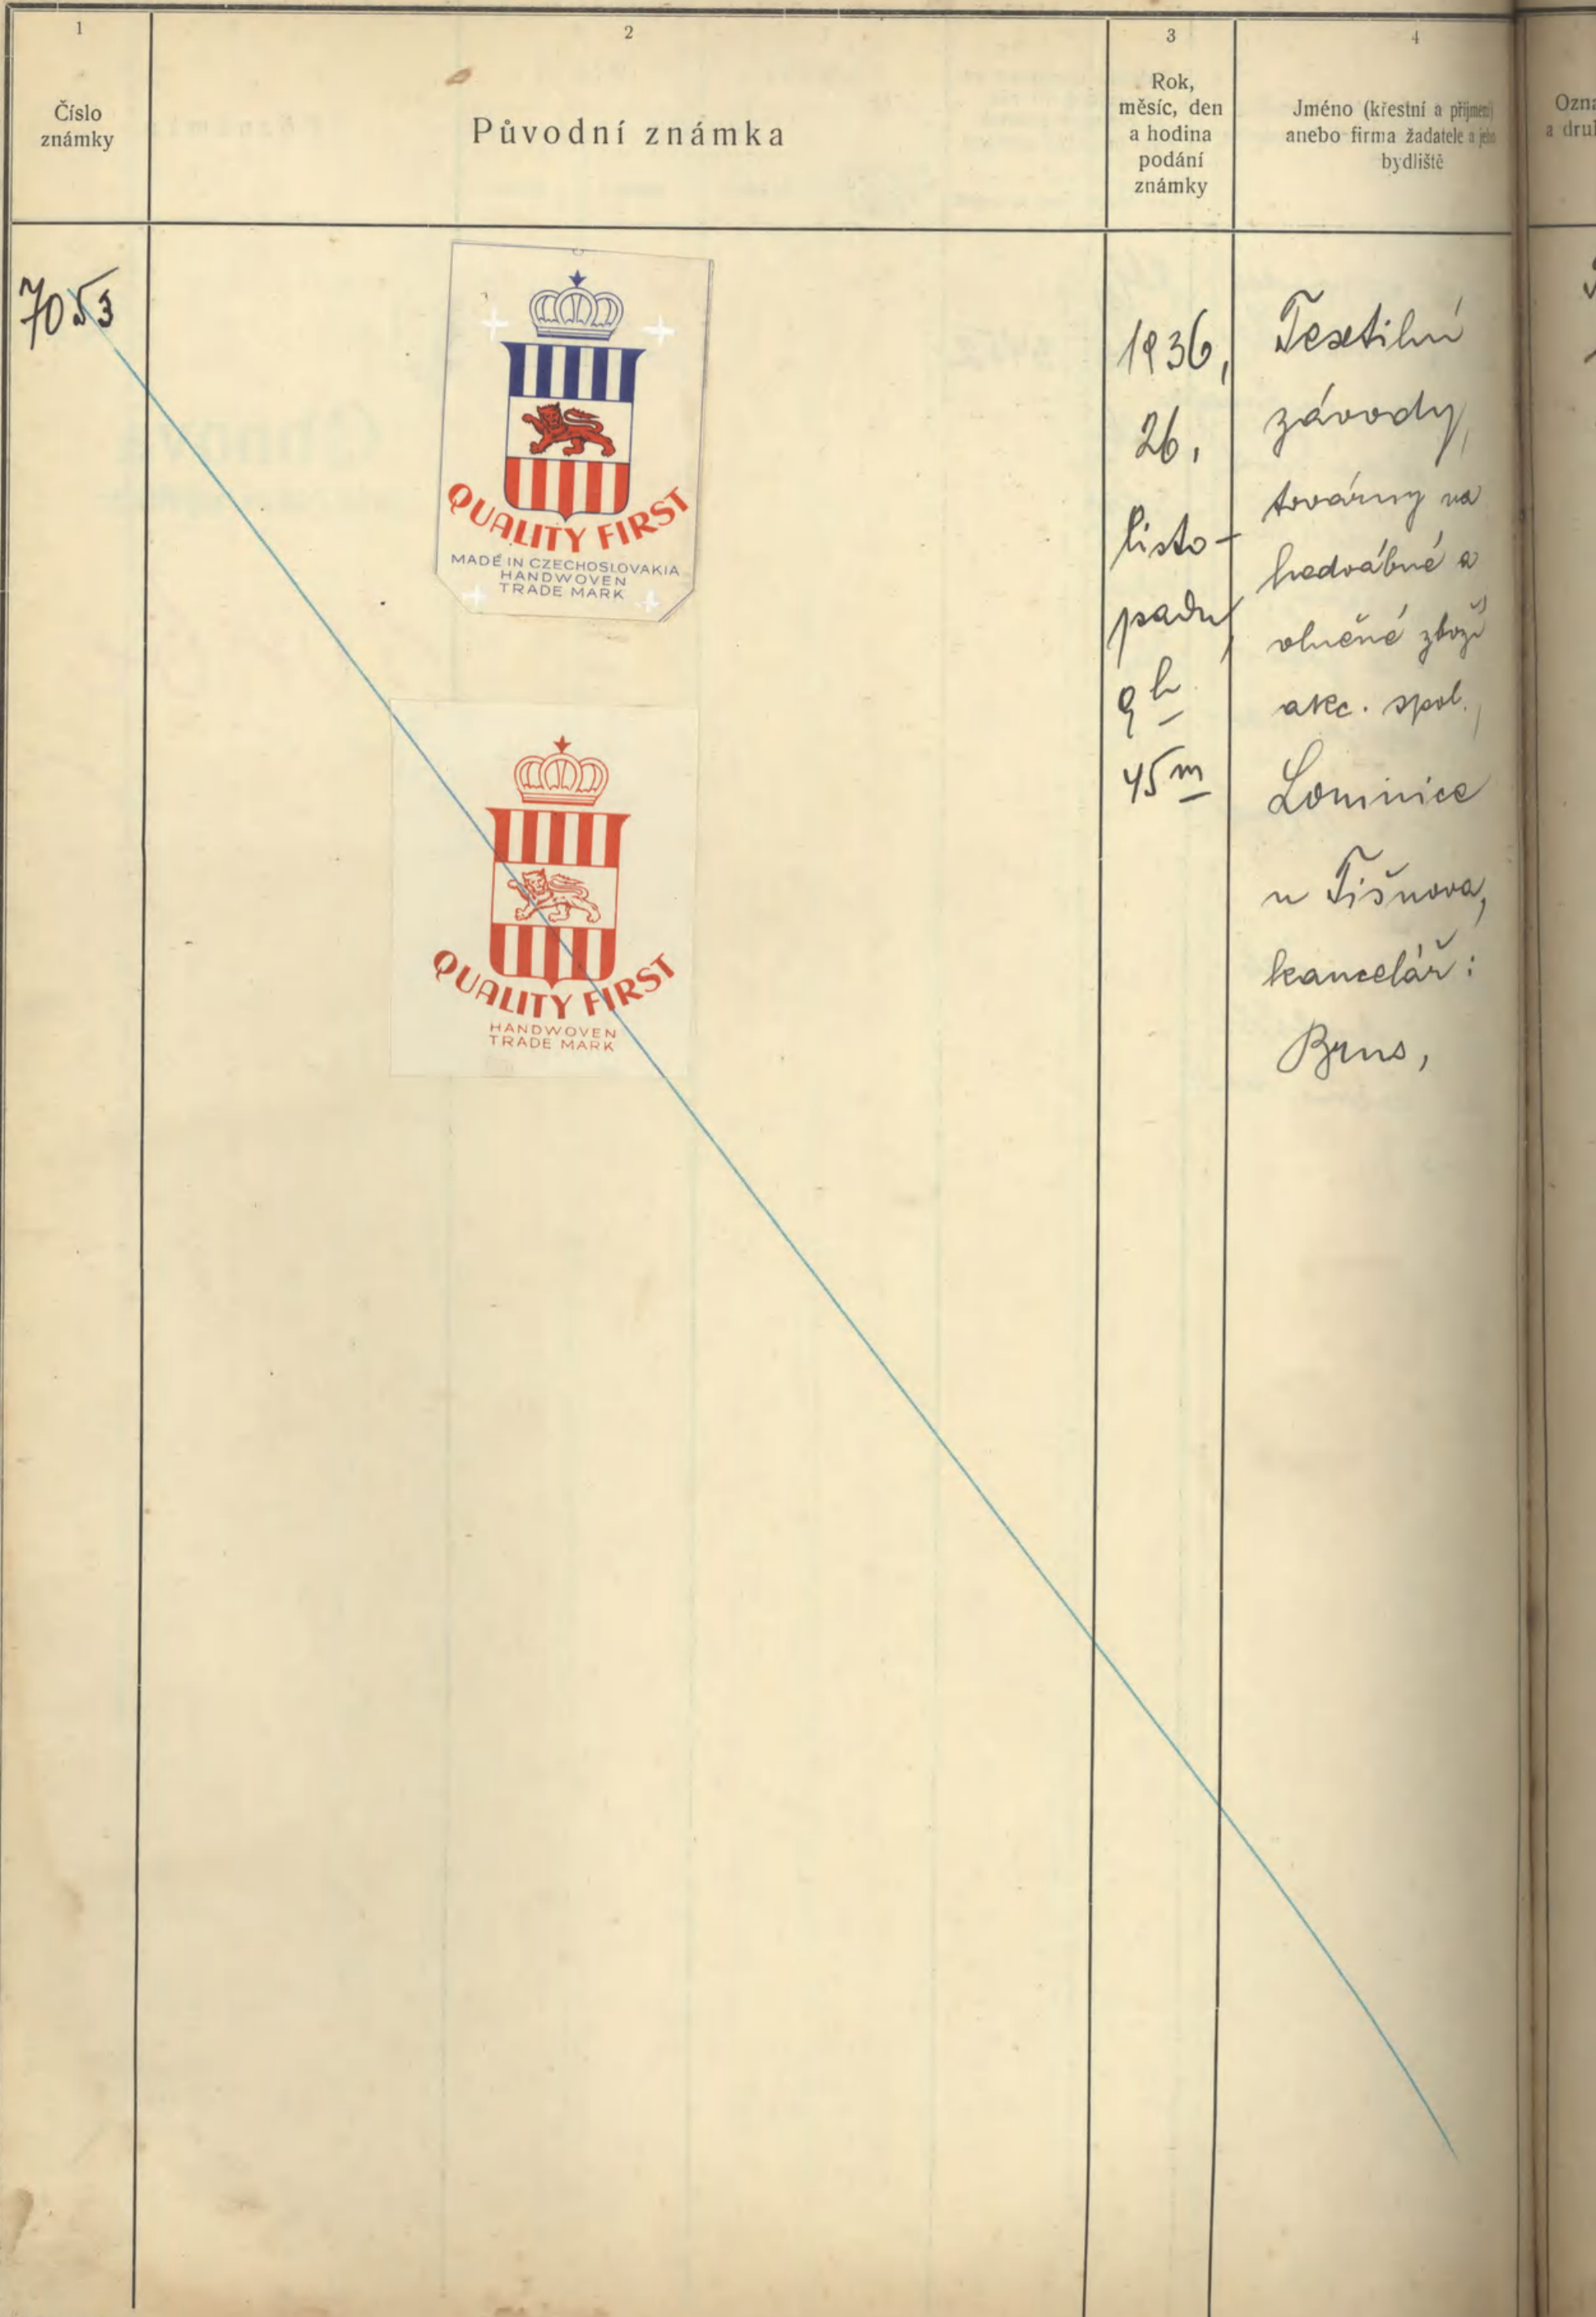 1
Číslo
známky
2
Původní známka
3
Rok,
měsíc, den
a hodina
podání
známky
4
Jméno (křestní a příjmení)
anebo firma žadatele a jeho
bydliště
7053
QUALITY FIRST
MADE IN CZECHOSLOVAKIA
HANDWOVEN
TRADE MARK
QUALITY FIRST
HANDWOVEN
TRADE MARK
1936,
26.
listo-
padu,
9 h
45 m
Textilní
závody,
továrny na
hedvábné a
vlněné zboží
akc. spol.,
Lomnice
u Tišnova,
kancelář:
Brno,